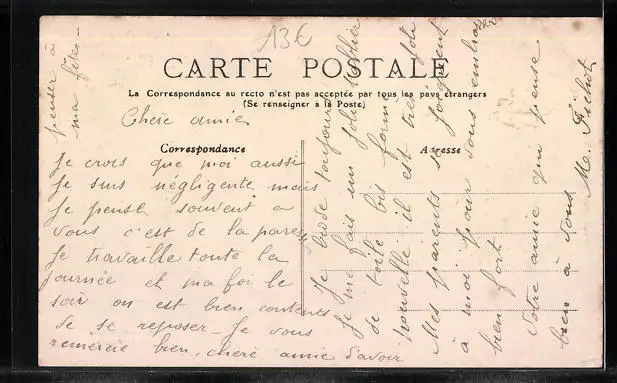 13€
CARTE POSTALE
La Correspondance au recto n'est pas acceptée par tous les pays étrangers
(Se renseigner à la Poste)
Correspondance
Adresse
Chère amie
Je crois que moi aussi
Je suis négligente mais
Je pense souvent a
vous c'est de la paresse
Je travaille toute la
journée et ma foi le
soir on est bien contentes
de se reposer - Je vous
remercie bien, chère amie d'avoir
penser à
ma fête -
Je brode toujours
Je me fais un joli tablier
de toile bis forme
nouvelle il est très joli
Mes parents se joignent
à moi pour vous embrasser
bien fort
Votre amie qui pense
bien à vous
M. Fichot